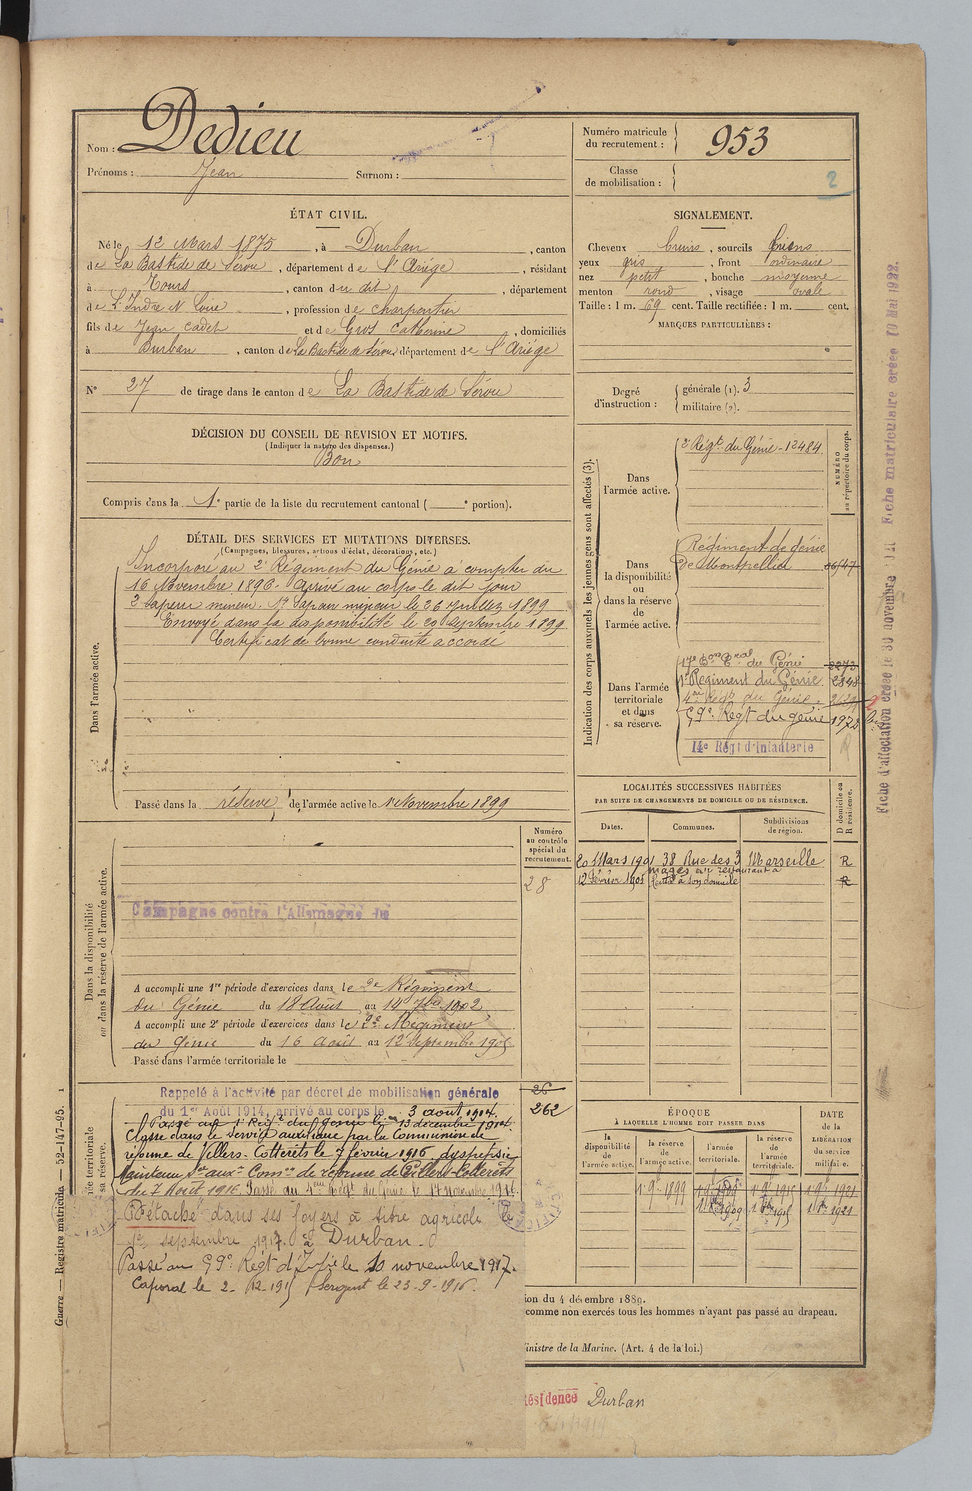 Nom : Dedieu
Prénoms : Jean Surnom :
Numéro matricule du recrutement : 953
Classe de mobilisation :
2
ÉTAT CIVIL.
Né le 12 Mars 1875, à Durban, canton
de La Bastide de Sérou, département de l'Ariège, résidant
à Tours, canton du dit, département
de l'Indre et Loire, profession de charpentier
fils de Jean cadet et de Gros Catherine, domiciliés
à Durban, canton de La Bastide de Sérou, département de l'Ariège
N° 27 de tirage dans le canton de La Bastide de Sérou
SIGNALEMENT.
Cheveux bruns, sourcils bruns
yeux gris, front ordinaire
nez petit, bouche moyenne
menton rond, visage ovale
Taille : 1 m. 69 cent. Taille rectifiée : 1 m. cent.
MARQUES PARTICULIÈRES :
Degré d'instruction : générale (1). 3
militaire (2).
DÉCISION DU CONSEIL DE REVISION ET MOTIFS.
(Indiquer la nature des dispenses.)
Bon
Compris dans la 1e partie de la liste du recrutement cantonal ( e portion).
DÉTAIL DES SERVICES ET MUTATIONS DIVERSES.
(Campagnes, blessures, actions d'éclat, décorations, etc.)
Dans l'armée active.
Incorporé au 2e Régiment du Génie à compter du
16 Novembre 1896. Arrivé au corps le dit jour
2e Sapeur mineur. 1er Sapeur mineur le 26 Juillet 1899
Envoyé dans la disponibilité le 20 Septembre 1899
Certificat de bonne conduite accordé
Passé dans la réserve de l'armée active le 1er Novembre 1899
Indication des corps auxquels les jeunes gens sont affectés (3).
NUMÉRO au répertoire du corps.
Dans l'armée active.
2e Régt du Génie - 12484
Dans la disponibilité ou dans la réserve de l'armée active.
Régiment de génie
de Montpellier
Dans l'armée territoriale et dans sa réserve.
17e Bon Tral du Génie 2273
1er Régiment du Génie 2848
4me Régt du Génie
G9e Régt du génie 1972
14e Régt d'Infanterie
LOCALITÉS SUCCESSIVES HABITÉES
PAR SUITE DE CHANGEMENTS DE DOMICILE OU DE RÉSIDENCE.
Dates. Communes. Subdivisions de région. D domicile ou R résidence.
20 Mars 1901 38 Rue des 3 Mages Marseille R
12 Février 1905 rentré à son domicile R
Numéro au contrôle spécial du recrutement.
28
Dans la disponibilité ou dans la réserve de l'armée active.
Campagne contre l'Allemagne du
A accompli une 1re période d'exercices dans le 2e Régiment
du Génie du 18 Août au 14 7bre 1902
A accompli une 2e période d'exercices dans le 2e Régiment
du Génie du 16 Août au 12 Septembre 1905
Passé dans l'armée territoriale le
26
262
Rappelé à l'activité par décret de mobilisation générale
du 1er Août 1914, arrivé au corps le 3 août 1914.
Passé au 1er Régt du génie le 13 décembre 1914.
Classé dans le service auxiliaire par la Commission de
réforme de Villers-Cotterêts le 7 février 1916 dyspepsie
Maintenu Sce auxre Comon de réforme de Villers-Cotterêts
du 7 Août 1916. Passé au 4me Régt du Génie le 17 novembre 1916.
Détaché dans ses foyers à titre agricole le
1er septembre 1917. à Durban.
Passé au G9e Régt d'Ifie le 10 novembre 1917.
Caporal le 2-12-1915 Sergent le 23-9-1916.
ÉPOQUE
À LAQUELLE L'HOMME DOIT PASSER DANS
la disponibilité de l'armée active.
la réserve de l'armée active.
l'armée territoriale.
la réserve de l'armée territoriale.
DATE de la LIBÉRATION du service militaire.
1er 9bre 1899 1er 9bre 1909 1er 9bre 1915 1er 9bre 1921
ion du 4 décembre 1889.
comme non exercés tous les hommes n'ayant pas passé au drapeau.
inistre de la Marine. (Art. 4 de la loi.)
Résidence Durban
Guerre. — Registre matricule. — 52-147-95. 1
Fiche d'affectation créée le 30 novembre
Fiche matriculaire créée 10 Mai 1922.